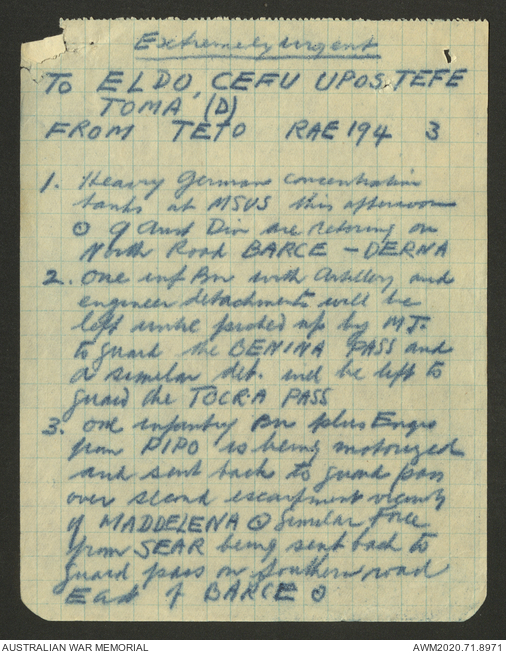 Extremely urgent
To ELDO, CEFU UPOS, TEFE
TOMA (D)
FROM TETO RAE 194 3
1. Heavy German concentration
tanks at MSUS this afternoon
⊙ 9 Aust Div are retiring on
North Road BARCE – DERNA
2. One inf Bn with Artillery and
engineer detachments will be
left until picked up by M.T.
to guard the BENINA PASS and
a similar det. will be left to
guard the TOCRA PASS
3. one infantry Bn plus Engrs
from PIPO is being motorized
and sent back to guard pass
over second escarpment vicinity
of MADDELENA ⊙ similar Force
from SEAR being sent back to
guard pass on southern road
East of BARCE ⊙
AUSTRALIAN WAR MEMORIAL
AWM2020.71.8971